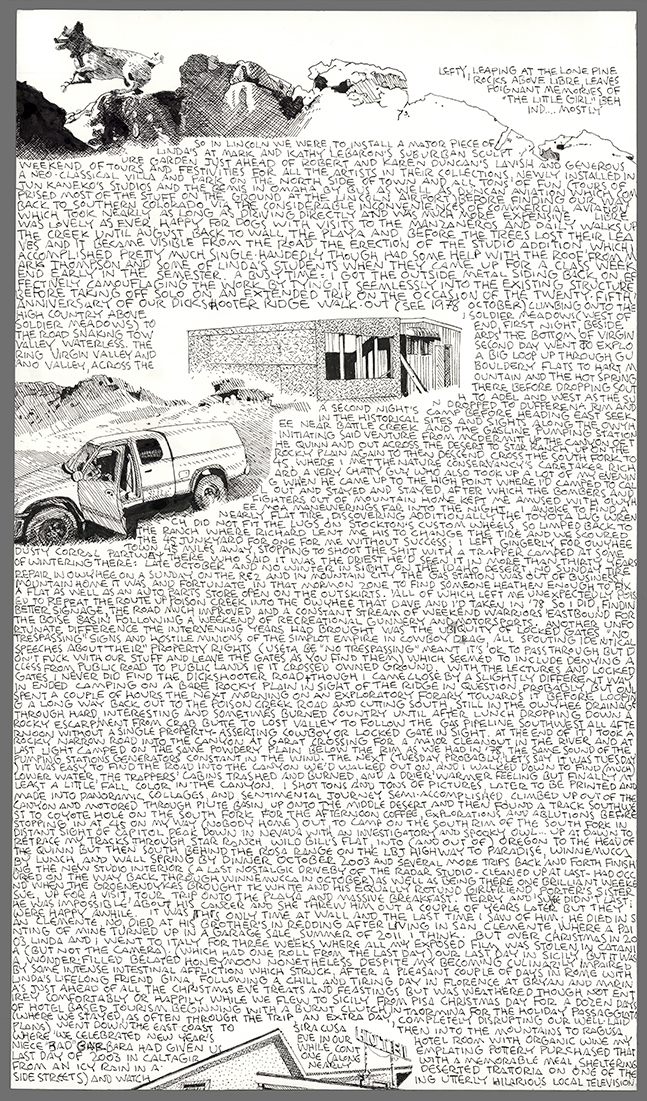 LEFTY, LEAPING AT THE LONE PINE
ROCKS ABOVE LIBRE, LEAVES
POIGNANT MEMORIES OF
"THE LITTLE GIRL" BEH
IND.... MOSTLY
SO IN LINCOLN WE WERE TO INSTALL A MAJOR PIECE OF
LINDA'S AT MARK AND KATHY LEBARON'S SUBURBAN SCULPT
URE GARDEN JUST AHEAD OF ROBERT AND KAREN DUNCAN'S LAVISH AND GENEROUS
WEEKEND OF TOURS AND FESTIVITIES FOR ALL THE ARTISTS IN THEIR COLLECTIONS NEWLY INSTALLED IN
A NEO-CLASSICAL VILLA AND PARK NORTH SIDE OF TOWN AND ALL TONS OF FUN (TOURS OF
JUN KANEKO'S STUDIOS AND THE BEMIS IN OMAHA BY BUS AS WELL, DUNCAN AVIATION
PRESSED MOST OF THE STUFF ON THE GROUND AT THE LINCOLN AIRPORT) BEFORE FINDING OUR WAY
BACK TO SOUTHERN COLORADO AT THE CONSIDERABLE INCONVENIENCES OF COMMERCIAL AVIATION
WHICH TOOK NEARLY AS LONG AS DRIVING DIRECTLY AND WAS MUCH MORE EXPENSIVE. LIBRE
WAS LOVELY AS EVER, HAPPY FOR DOGS WITH VISITS TO THE MANZANERES' AND DAILY WALKS UP
THE CREEK UNTIL AUGUST BACK TO WALL, THE PLAYA AND BEFORE THE TREES LOST THEIR LEA
VES AND IT BECAME VISIBLE FROM THE ROAD THE ERECTION OF THE STUDIO ADDITION WHICH I
ACCOMPLISHED PRETTY MUCH SINGLE-HANDEDLY THOUGH HAD SOME HELP WITH THE ROOF FROM M
ARK THOMPSON AND SOME OF LINDA'S STUDENTS WHEN THEY CAME UP FOR A CLASS WEEK
END EARLY IN THE SEMESTER. A BUSY TIME, I GOT THE OUTSIDE METAL SIDING BACK ON EF
FECTIVELY CAMOUFLAGING THE WORK BY TYING IT SEEMLESSLY INTO THE EXISTING STRUCTURE
BEFORE TAKING OFF SOLO ON AN EXTENDED TRIP ON THE OCCASION OF THE TWENTY-FIFTH
ANNIVERSARY OF OUR DICKSHOOTER RIDGE WALK OUT (SEE 1978
HIGH COUNTRY ABOVE
SOLDIER MEADOWS) TO
THE ROAD SNAKING TOW
VALLEY, WATERLESS, THE
RING VIRGIN VALLEY AND
ANO VALLEY, ACROSS THE
OCTOBER) CLIMBING ONTO THE
SOLDIER MEADOWS (WEST OF
END, FIRST NIGHT, BESIDE
ARDS THE BOTTOM OF VIRGIN
SECOND DAY WENT TO EXPLO
A BIG LOOP UP THROUGH GU
BOULDERY FLATS TO HART M
OUNTAIN AND THE HOT SPRING
THERE BEFORE DROPPING SOUT
H TO ADEL AND WEST AS THE SU
N DROPPED TO SUFFER AN RIM AND
A SECOND NIGHT'S CAMP BEFORE HEADING EAST SEEK
IN THE HISTORICAL SITES AND SIGHTS ALONG THE OWYH
EE NEAR BATTLE CREEK AND THE GASLINE PUMPING STATION
INITIATING SAID VENTURE FROM McDERMITT UP THE CANYON OF T
HE QUINN AND OUT ACROSS THE DESERT TO STAR RANCH UP ON THE
ROCKY PLAIN AGAIN TO THEN DESCEND CROSS THE SOUTH FORK TO
45, WHERE I MET THE NATURE CONSERVANCY'S CARETAKER RICH
ARD, A VERY CHATTY GUY WHO ALSO TOOK UP A LOT OF THE EVENIN
G WHEN HE CAME UP TO THE HIGH POINT WHERE I'D CAMPED TO CALL
OUT AND STAYED AND STAYED, AFTER WHICH THE BOMBERS AND
FIGHTERS OUT OF MOUNTAIN HOME KEPT ME AMUSED WITH OWYH
EE MOA MANEUVERINGS FAR INTO THE NIGHT. AWOKE TO FIND A
NEARLY FLAT TIRE DISCOVERING ADDITIONALLY THE TOYOTA LUG WREN
CH DID NOT FIT THE LUGS ON STOCKTON'S CUSTOM WHEELS, SO LIMPED BACK TO
THE RANCH WHERE RICHARD LENT ME HIS TO CHANGE THE TIRE AND WE SCOURED
THE 45 JUNKYARD FOR ONE FOR ME WITHOUT SUCCESS. I LEFT GINGERLY FOR OWYHEE
TOWN 45 MILES AWAY, STOPPING TO SHOOT THE SHIT WITH A TRAPPER CAMPED AT SOME
DUSTY CORRAL PARTWAY THERE WHO SAID IT WAS THE DRIEST HE'D SEEN IT IN MORE THAN THIRTY YEARS
OF WINTERING THERE: LATE OCTOBER AND NO WINTER IN SIGHT ON THE IDAHO DESERT. NO SUCH TIRE
REPAIR IN OWYHEE ON A SUNDAY ON THE REZ AND IN MOUNTAIN CITY THE GAS STATION WAS OUT OF BUSINESS,
MOUNTAIN HOME IT WAS, AND FORTUNATE, IN THAT MORMON ZONE TO FIND SOMEONE HEATHEN ENOUGH TO FIX
A FLAT AS WELL AS AN AUTO PARTS STORE OPEN ON THE OUTSKIRTS. ALL OF WHICH LEFT ME UNEXPECTEDLY POIS
ED TO REPEAT THE ROUTE UP POISON CREEK INTO THE OWYHEE THAT DAVE AND I'D TAKEN IN '78 SO I DID, FINDIN
BETTER SIGNAGE, THE ROAD MUCH IMPROVED AND A CONSTANT STREAM OF WEEKEND WARRIORS EASTBOUND FOR
THE BOISE BASIN FOLLOWING A WEEKEND OF RECREATIONAL GUNNERY AND MOTORSPORTS. ANOTHER UNFO
RTUNATE DIFFERENCE THE INTERVENING YEARS HAD BROUGHT WAS THE UBIQUITY OF LOCKED GATES, "NO
TRESPASSING" SIGNS AND HOSTILE MINIONS OF THE SIMPLOT EMPIRE IN COWBOY DRAG, ALL SPOUTING IDENTICAL
SPEECHES ABOUT "THEIR" PROPERTY RIGHTS (USETA BE "NO TRESPASSING" MEANT IT'S 'OK TO PASS THROUGH BUT D
ON'T FUCK WITH OUR STUFF AND LEAVE THE GATES AS YOU FIND THEM') WHICH SEEMED TO INCLUDE DENYING A
CCESS FROM PUBLIC ROAD TO PUBLIC LANDS IF IT CROSSED OWNED GROUND. WITH THE LECTURES AND LOCKED
GATES I NEVER DID FIND THE DICKSHOOTER ROAD, THOUGH I CAME CLOSE BY A SLIGHTLY DIFFERENT WAY
IN, ENDED CAMPING ON A BARE ROCKY PLAIN IN SIGHT OF THE RIDGE IN QUESTION, PROBABLY, BUT ON
SPENT A COUPLE OF HOURS THE NEXT MORNING ON AN EXPLORATORY FORAY TOWARDS IT BEFORE LOOPIN
G A LONG WAY BACK OUT TO THE POISON CREEK ROAD AND CUTTING SOUTH, STILL IN THE OWYHEE DRAINAGE
THROUGH HARD INTERESTING AND SOMETIMES BURNED COUNTRY UNTIL AFTER LUNCH DROPPING DOWN A
ROCKY ESCARPMENT FROM CRAB BUTTE TO LOST VALLEY TO FOLLOW THE GAS PIPELINE SOUTHWEST ALL AFTE
RNOON WITHOUT A SINGLE PROPERTY-ASSERTING COWBOY OR LOCKED GATE IN SIGHT. AT THE END OF IT I TOOK A
ROCKY NARROW ROAD INTO THE CANYON AT GARAT CROSSING FOR A MAJOR CLEANOUT IN THE RIVER AND AT
LAST LIGHT CAMPED ON THE SAME POWDERY PLAIN BELOW THE RIM AS WE HAD IN '78, THE SAME SOUND OF THE
PUMPING STATIONS GENERATORS CONSTANT IN THE WIND. THE NEXT (TUESDAY PROBABLY, LET'S SAY IT WAS TUESDAY
) IT WAS EASY TO FIND THE ROAD INTO THE CANYON WE'D WALKED OUT ON, AND I WALKED DOWN TO FIND MUCH
LOWER WATER, THE TRAPPERS' CABINS TRASHED AND BURNED, AND A DRIER WARMER FEELING BUT FINALLY AT
LEAST A LITTLE FALL COLOR IN THE CANYON. I SHOT TONS AND TONS OF PICTURES, LATER TO BE PRINTED AND
MADE INTO PANORAMIC COLLAGES, AND SENTIMENTAL JOURNEY SEMI-ACCOMPLISHED, CLIMBED UP OUT OF THE
CANYON AND MOTORED THROUGH PIUTE BASIN, UP ONTO THE MIDDLE DESERT AND THEN FOUND A TRACK SOUTHEA
ST TO COYOTE HOLE ON THE SOUTH FORK FOR THE AFTERNOON COFFEE, EXPLORATIONS AND ABLUTIONS BEFORE
STOPPING IN AT 45 ON MY WAY (NOBODY HOME) OUT TO CAMP ON THE SOUTH RIM OF THE SOUTH FORK IN
DISTANT SIGHT OF CAPITOL PEAK DOWN IN NEVADA WITH AN INVESTIGATORY AND SPOOKY OWL... UP AT DAWN TO
RETRACE MY TRACKS THROUGH STAR RANCH, WILD BILL'S FLAT INTO (AND OUT OF) OREGON TO THE HEAD OF
THE QUINN BUT THEN SOUTH BEHIND THE SANTA ROSA RANGE ON THE LBJ HIGHWAY TO PARADISE, WINNEMUCCA
BY LUNCH AND WALL SPRING BY DINNER OCTOBER 2003 AND SEVERAL MORE TRIPS BACK AND FORTH FINISHI
NG THE NEW STUDIO INTERIOR (A LAST NOSTALGIC DRIVEBY OF THE RADAR STUDIO - CLEANED UP AT LAST - HAD OCC
URED ON THE WAY BACK THROUGH WINNEMUCCA IN OCTOBER) AS WELL AS BEING THERE ONE BRILLIANT WEEKE
ND WHEN THE GROENENDYKES BROUGHT TK WHITE AND HIS EQUALLY ROTUND GIRLFRIEND, PORTER'S SISTER
SUE, UP FOR A VISIT, TOUR, TRIP ONTO THE PLAYA AND MASSIVE BREAKFAST. TERRY AND SUE DIDN'T LAST,
HE WAS IMPOSSIBLE ABOUT HIS CANCER AND SHE THREW HIM OUT A COUPLE OF YEARS LATER BUT THEY
WERE HAPPY AWHILE. IT WAS THIS ONLY TIME AT WALL AND THE LAST TIME I SAW OF HIM; HE DIED IN S
AN CLEMENTE. NO, DIED AT HIS BROTHER'S IN REDDING AFTER LIVING IN SAN CLEMENTE, WHERE A PAI
NTING OF MINE TURNED UP IN A GARAGE SALE SUMMER OF 2011 I THINK. BUT OVER CHRISTMAS IN 20
03 LINDA AND I WENT TO ITALY FOR THREE WEEKS WHERE ALL MY EXPOSED FILM WAS STOLEN IN CATANI
A (BUT NOT THE CAMERA) (WHICH HAD ONE ROLL FROM THE LAST DAY) OUR LAST DAY IN SICILY. BUT IT WAS
A WONDER-FILLED BELATED HONEYMOON NONETHELESS DESPITE MY BECOMING CULINARILY IMPAIRED
BY SOME INTENSE INTESTINAL AFFLICTION WHICH STRUCK, AFTER A PLEASANT COUPLE OF DAYS IN ROME WITH
LINDA'S LIFELONG FRIEND GINA, FOLLOWING A CHILL AND TIRING DAY IN FLORENCE AT BRYAN AND MARIN
A'S JUST AHEAD OF ALL THE CHRISTMAS EVE TREATS AND FEASTINGS BUT WAS WEATHERED THOUGH NOT ENT
IRELY COMFORTABLY OR HAPPILY WHILE WE FLEW TO SICILY FROM PISA CHRISTMAS DAY FOR A DOZEN DAYS
OF HOTEL BASED TOURISM BEGINNING WITH A BURNT CLUTCH IN TAORMINA FOR THE HOLIDAY PASSAGGIATO
(WHERE WE STAYED, AS OFTEN THROUGH THE TRIP, AN EXTRA DAY, COMPLETELY DISRUPTING OUR WELL LAID
PLANS) WENT DOWN THE EAST COAST TO
WHERE WE CELEBRATED NEW YEAR'S
NIECE BARBARA HAD GIVEN US
LAST DAY OF 2003 IN CALTAGIR
FROM AN ICY RAIN IN A
SIDE STREETS) AND WATCH
SIRACUSA
EVE IN OUR
WHILE CONT
ONE (ALONG
NEARLY
HOTEL
THEN INTO THE MOUNTAINS TO RAGUSA
HOTEL ROOM WITH ORGANIC WINE MY
EMPLATING POTTERY PURCHASED THAT
WITH A MEMORABLE MEAL SHELTERING
DESERTED TRATTORIA ON ONE OF THE
ING UTTERLY HILARIOUS LOCAL TELEVISION